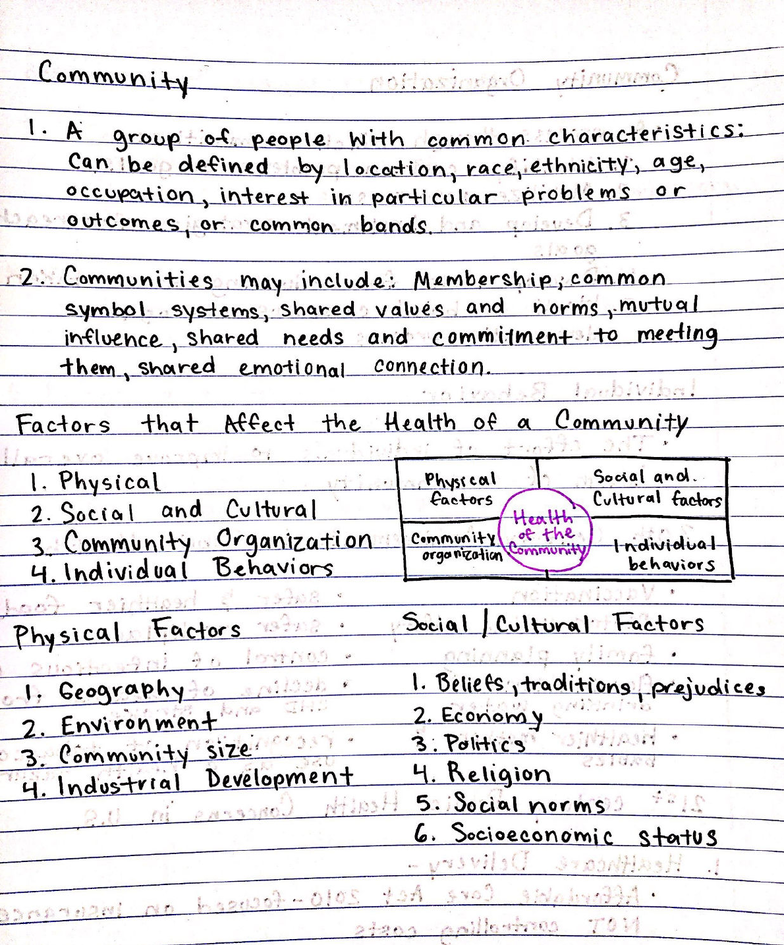 Community
1. A group of people with common characteristics:
Can be defined by location, race, ethnicity, age,
occupation, interest in particular problems or
outcomes, or common bonds.
2. Communities may include: Membership, common
symbol systems, shared values and norms, mutual
influence, shared needs and commitment to meeting
them, shared emotional connection.
Factors that Affect the Health of a Community
1. Physical
2. Social and Cultural
3. Community Organization
4. Individual Behaviors
Physical
factors
Social and
Cultural factors
Health
of the
Community
Community
organization
Individual
behaviors
Physical Factors
1. Geography
2. Environment
3. Community size
4. Industrial Development
Social / Cultural Factors
1. Beliefs, traditions, prejudices
2. Economy
3. Politics
4. Religion
5. Social norms
6. Socioeconomic status